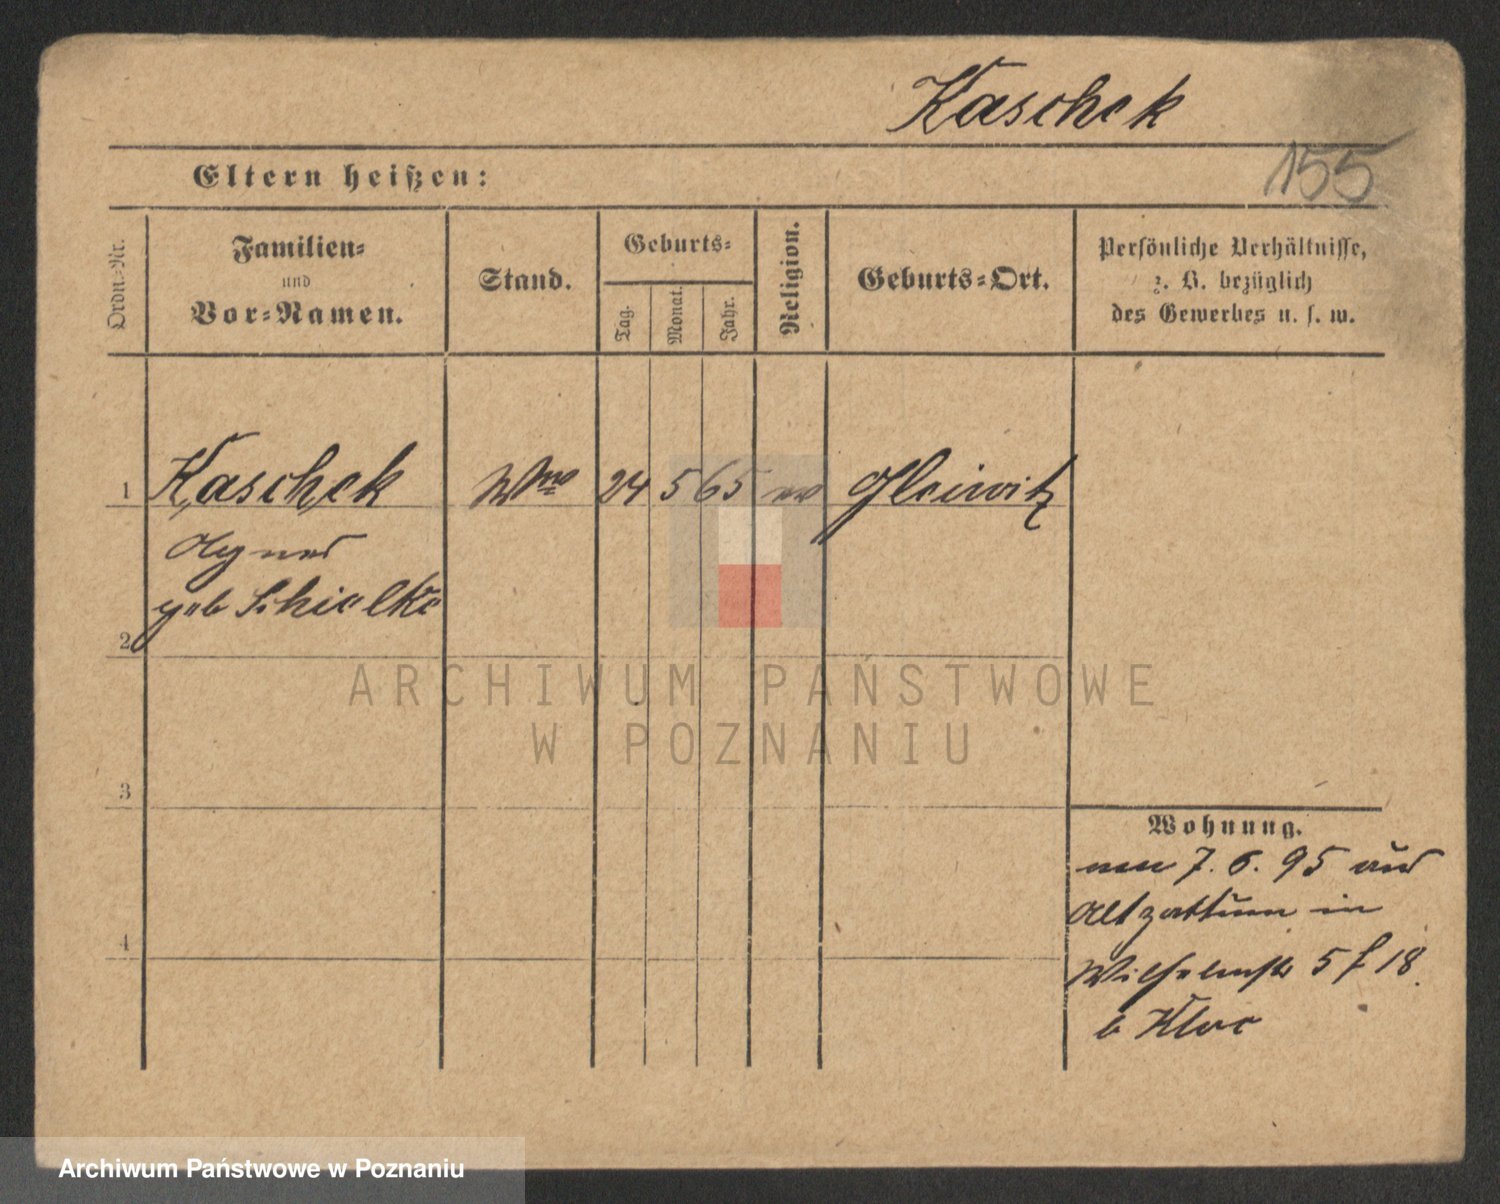 Kaschek
155
Eltern heißen:
Ordn.-Nr.
Familien-
und
Vor-Namen.
Stand.
Geburts-
Tag.
Monat.
Jahr.
Religion.
Geburts-Ort.
Persönliche Verhältnisse,
z. B. bezüglich
des Gewerbes u. s. w.
1 Kaschek Wwe 24 5 65 ev Gleiwitz
Agnes
geb Schielke
2
3
4
Wohnung.
7. 6. 95 aus
in
Wilhelmstr 5 f 18.
b Kloc
ARCHIWUM PAŃSTWOWE
W POZNANIU
Archiwum Państwowe w Poznaniu